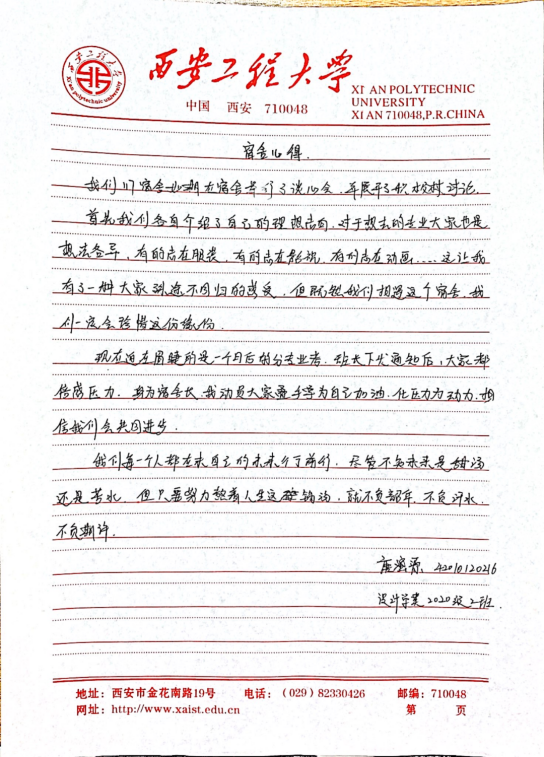 西安工程大学
西安工程大学
Xi'an polytechnic university
中国 西安 710048
XI AN POLYTECHNIC
UNIVERSITY
XI AN 710048,P.R.CHINA
宿舍心得.
我们宿舍在宿舍举行了谈心会，并展开了积极讨论.
首先我们各自介绍了自己的理想志向，对于想去的专业大家也是
想法各异，有的志在服装，有的志在，有的志在动画……这让我
有了一种大家殊途不同归的感受，但既然我们相遇这个宿舍，我
们一定会珍惜这份缘份.
现在迫在眉睫的是一个月后的分专业考，班长下发通知后，大家都
倍感压力，身为宿舍长，我动员大家携手学为自己加油，化压力为动力，相
信我们会共同进步.
我们每一个人都在未自己的未来行万前行，尽管不知未来是甜汤
还是苦水，但只要努力熬着人生这锅汤，就不负韶华，不负汗水，
不负期许.
42010120216
设计学类2020级2班.
地址：西安市金花南路19号 电话：（029）82330426 邮编：710048
网址：http://www.xaist.edu.cn 第 页